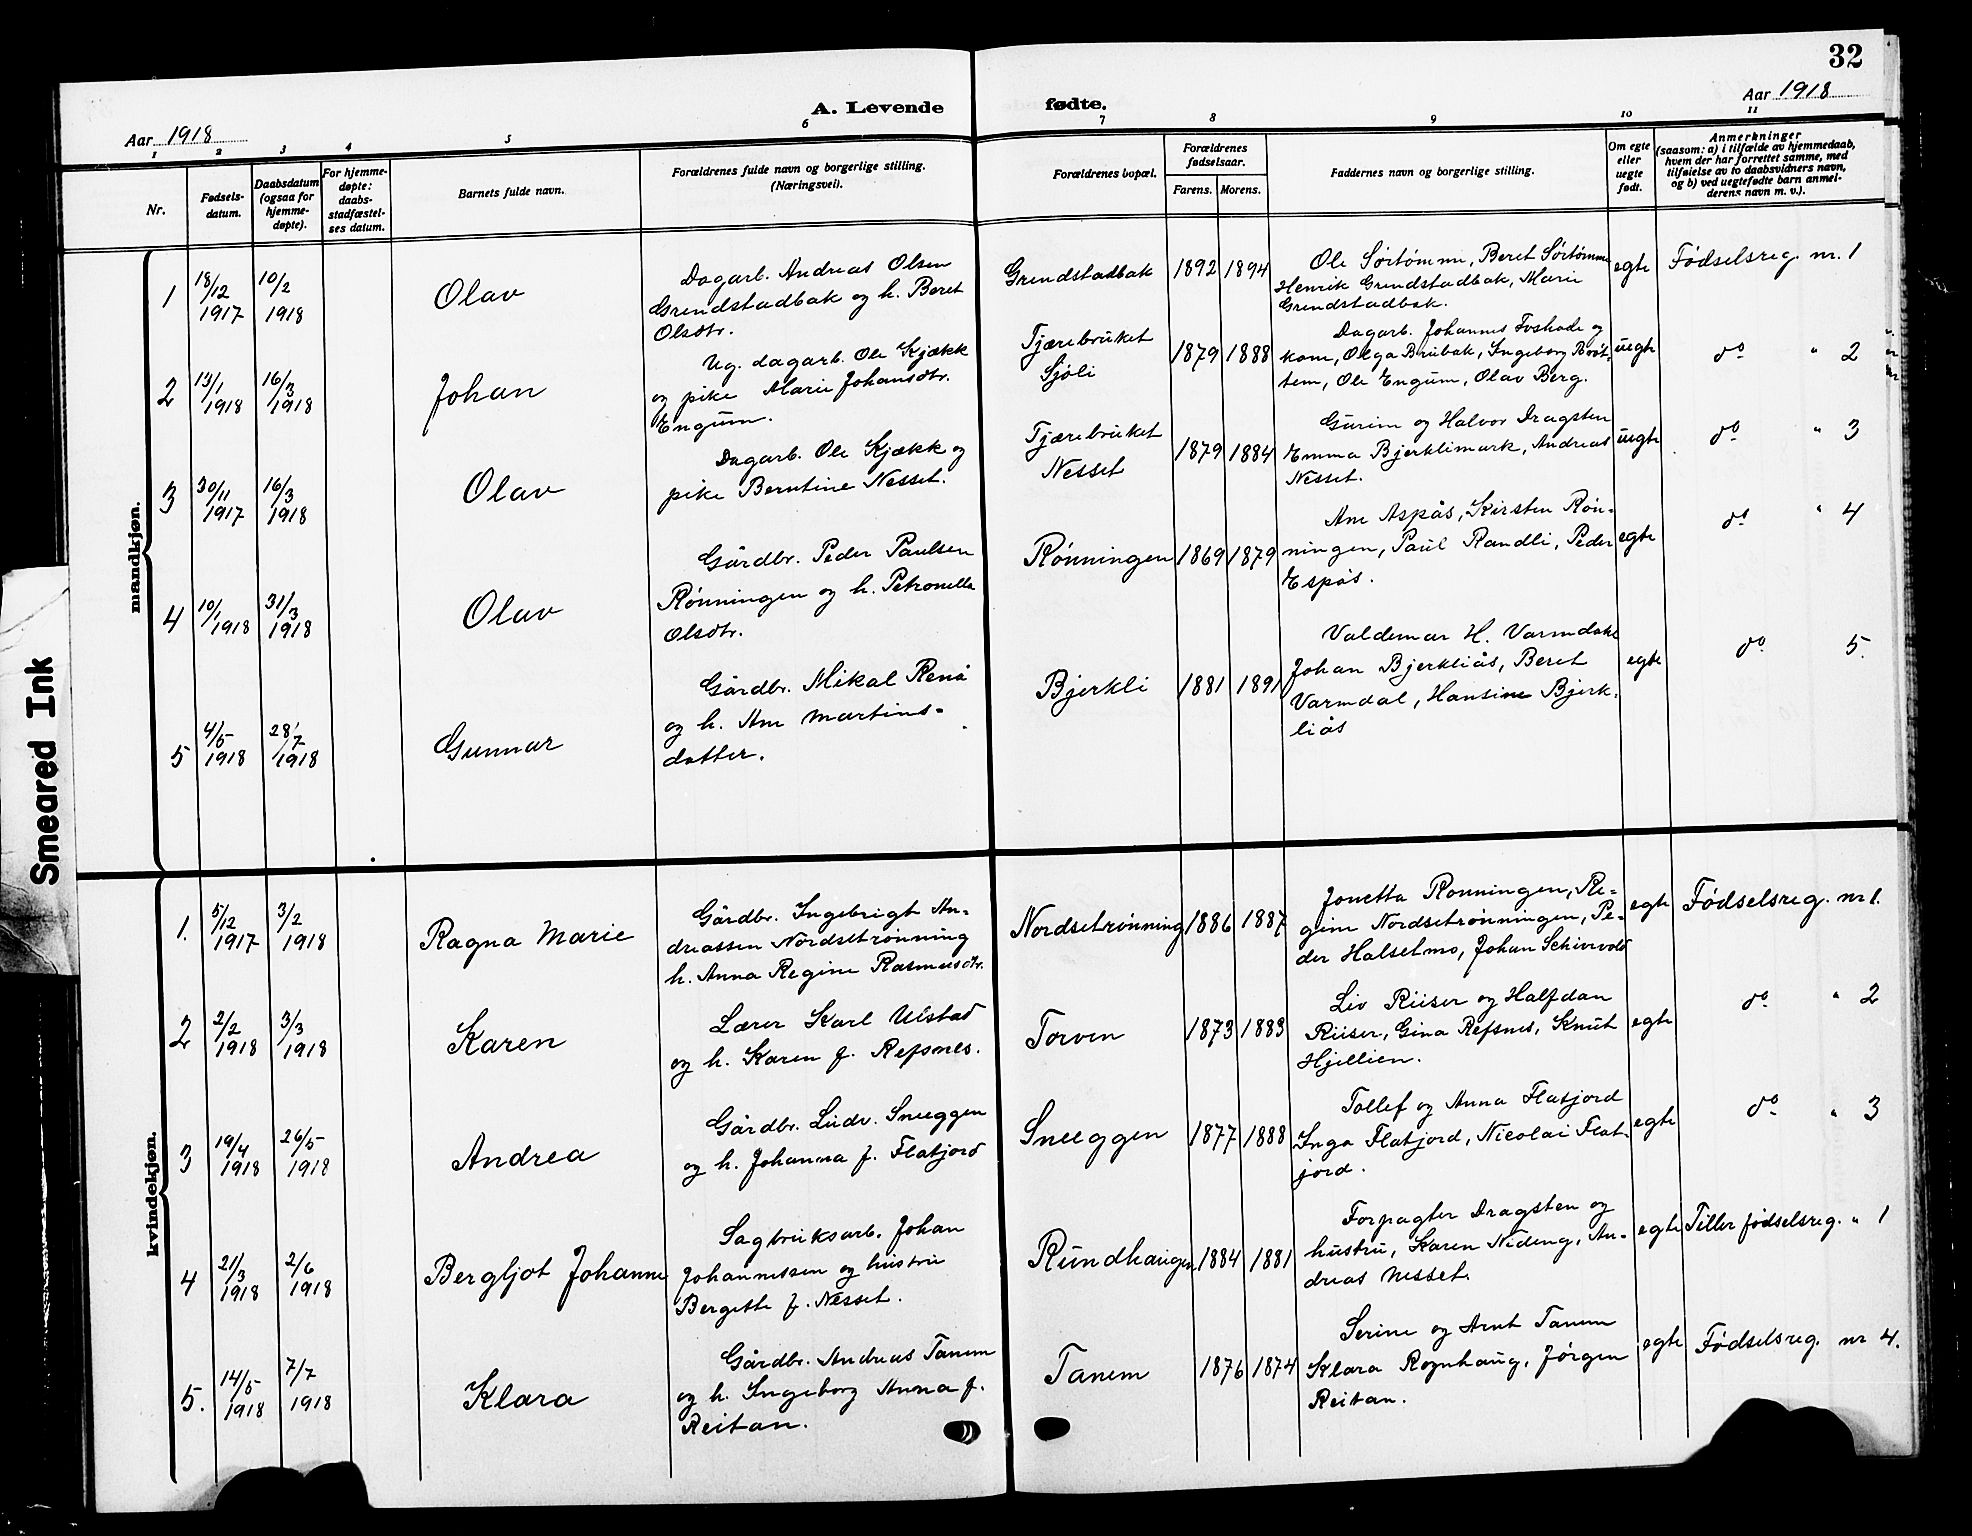 32
A. Levende fødte.
Aar 1918
Aar 1918
1 2 3 4 5 6 7 8 9 10 11
Nr.
Fødsels-
datum.
Daabsdatum
(ogsaa for
hjemme-
døpte).
For hjemme-
døpte:
daabs-
stadfæstel-
ses datum.
Barnets fulde navn.
Forældrenes fulde navn og borgerlige stilling.
(Næringsvei).
Forældrenes bopæl.
Forældrenes
fødselsaar.
Farens. Morens.
Faddernes navn og borgerlige stilling.
Om egte
eller
uegte
født.
Anmerkninger
(saasom: a) i tilfælde av hjemmedaab,
hvem der har forrettet samme, med
tilføielse av to daabsvidners navn,
og b) ved uegtefødte barn anmel-
derens navn m. v.).
mandkjøn.
1
18/12
1917
10/2
1918
Olav
Dagarb. Andreas Olsen
Grendstadbak og h. Beret
Olsdtr.
Grendstadbak
1892 1894
Ole Sørtømme, Beret Sørtømme
Henrik Grendstadbak, Marie
Grendstadbak.
egte
Fødselsreg. nr. 1
2
13/1
1918
16/3
1918
Johan
Ug. dagarb. Ole Kjækk
og pike Marie Johansdtr.
Engum.
Tjærebruket
Sjøli
1879 1888
Dagarb. Johannes og
Olga Brubak, Ingeborg
tem, Ole Engum, Olav Berg.
uegte
do " 2
3
30/11
1917
16/3
1918
Olav
Dagarb. Ole Kjækk og
pike Berntine Nesset.
Tjærebruket
Nesset
1879 1884
Gurine og Halvor Dragsten
Emma Bjerklimark, Andreas
Nesset.
uegte
do " 3
4
10/1
1918
31/3
1918
Olav
Gårdbr. Peder Paulsen
Rønningen og h. Petronella
Olsdtr.
Rønningen
1869 1879
Ane Aspås, Kirsten Røn-
ningen, Paul Randli, Peder
Espås.
egte
do " 4
5
4/5
1918
28/7
1918
Gunnar
Gårdbr. Mikal Renå
og h. Ane Martins-
datter.
Bjerkli
1881 1891
Valdemar H. Varmdal
Johan Bjerkliås, Beret
Varmdal, Hansine Bjerk-
liås
egte
do 5.
kvindekjøn.
1.
5/12
1917
3/2
1918
Ragna Marie
Gårdbr. Ingebrigt An-
dreassen Nordsetrønning
h. Anna Regine Rasmusdtr.
Nordsetrønning
1886 1887
Jonetta Rønningen, Re-
gine Nordsetrønningen, Pe-
der Halsetmo, Johan Schirvold
egte
Fødselsreg. nr 1.
2
2/2
1918
3/3
1918
Karen
Lærer Karl Ulstad
og h. Karen f. Refsnes.
Torven
1873 1883
Liv Riiser og Halfdan
Riiser, Gina Refsnes, Knut
Hjellien.
egte
do " 2
3
19/4
1918
26/5
1918
Andrea
Gårdbr. Ludv. Sneeggen
og h. Johanna f. Flatjord
Sneeggen
1877 1888
Tollef og Anna Flatjord
Inga Flatjord, Nicolai Flat-
jord.
egte
do " 3
4
21/3
1918
2/6
1918
Bergljot Johanne
Sagbruksarb. Johan
Johannessen og hustru
Bergitte f. Nesset.
Rundhaugen
1884 1881
Forpagter Dragsten og
hustru, Karen Nideng, An-
dreas Nesset.
egte
Tiller fødselsreg. " 1
5.
14/5
1918
7/7
1918
Klara
Gårdbr. Andreas Tanem
og h. Ingeborg Anna f.
Reitan.
Tanem
1876 1874
Serine og Arnt Tanem
Klara Rognhaug, Jørgen
Reitan.
egte
Fødselsreg. nr 4.
Smeared Ink